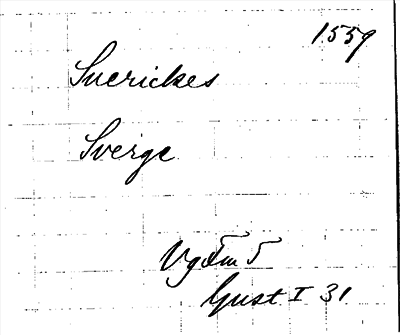 1559
Suerickes
Sverge
Vg Fm 5
Gust I 31